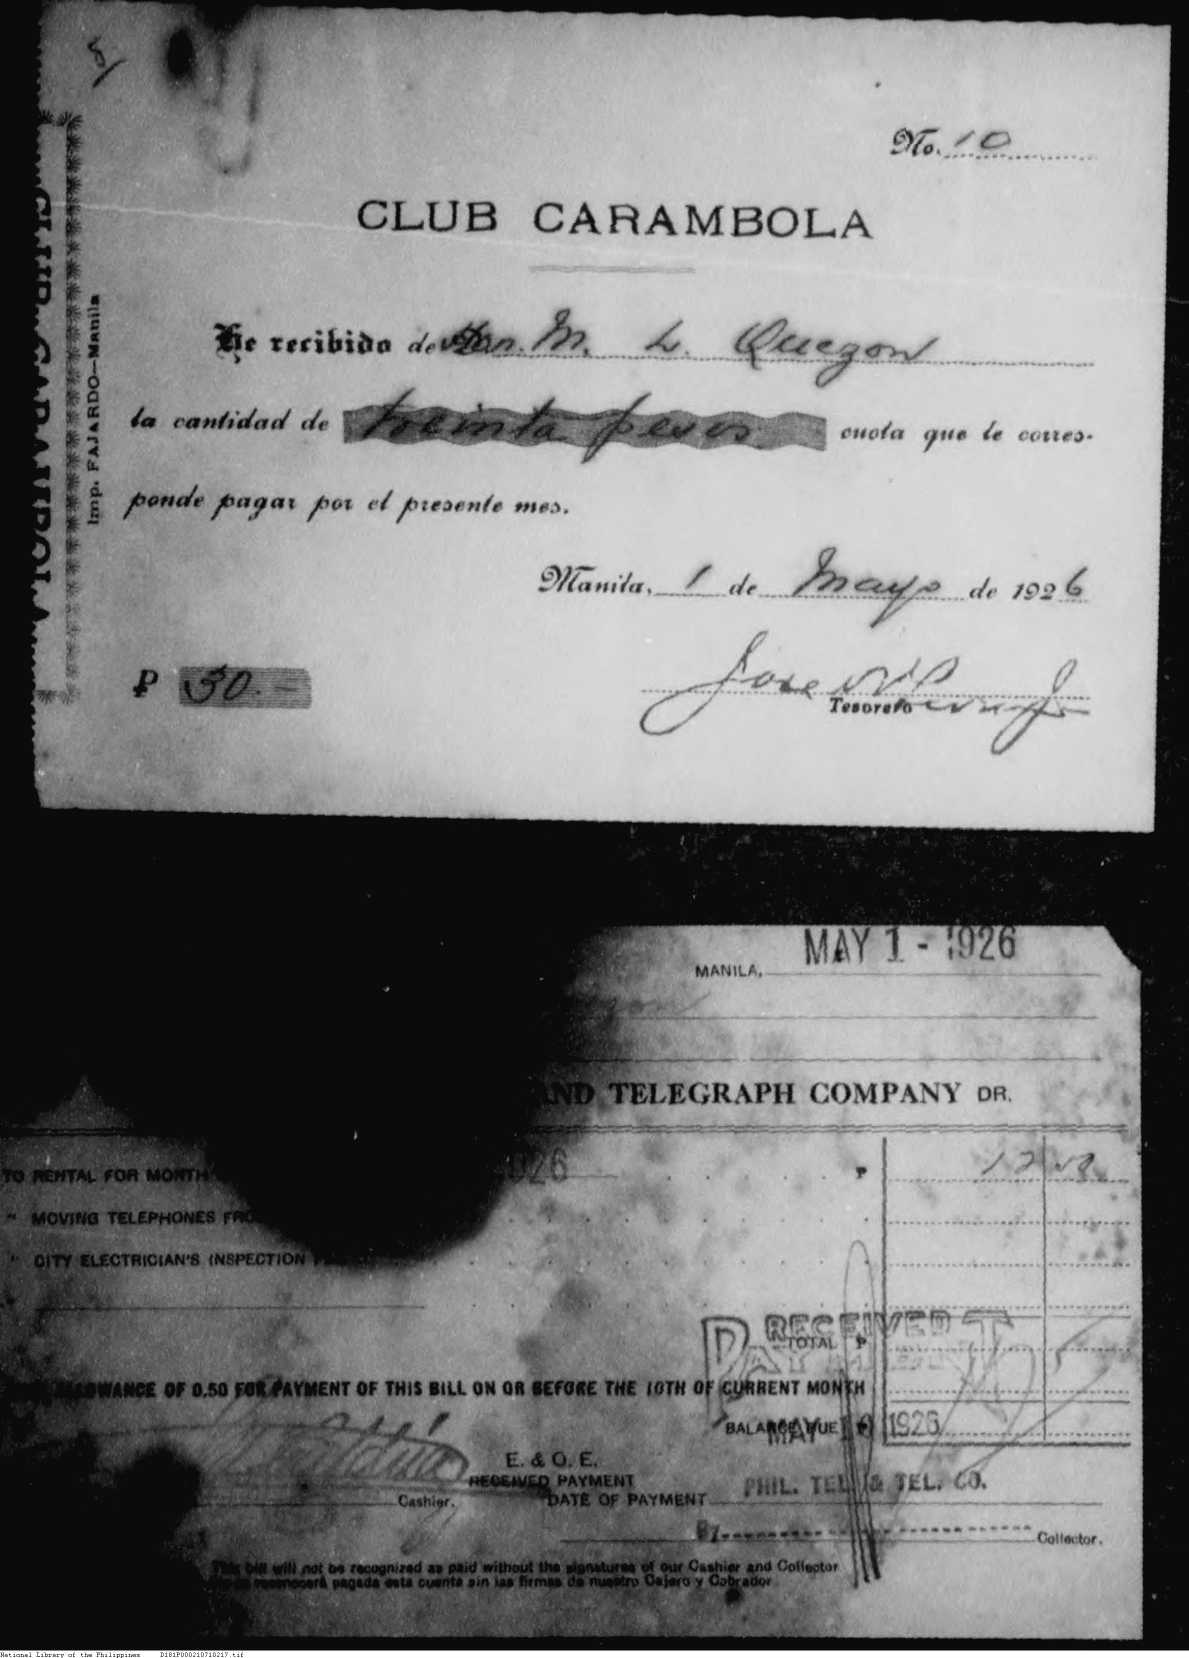 No. 10
CLUB CARAMBOLA
CLUB CARAMBOLA
Imp. FAJARDO—Manila
He recibido de Hon. M. L. Quezon
la cantidad de treinta pesos cuota que le corres-
ponde pagar por el presente mes.
Manila, 1 de Mayo de 1926
₱ 30.—
Jose
Tesorero
MANILA, MAY 1 - 1926
AND TELEGRAPH COMPANY DR.
TO RENTAL FOR MONTH 1926 ₱
" MOVING TELEPHONES FRO
" CITY ELECTRICIAN'S INSPECTION
RECEIVED
PAYMENT
TOTAL ₱
ALLOWANCE OF 0.50 FOR PAYMENT OF THIS BILL ON OR BEFORE THE 10TH OF CURRENT MONTH
BALANCE DUE ₱
MAY 10 1926
E. & O. E.
RECEIVED PAYMENT
PHIL. TEL. & TEL. CO.
Cashier.
DATE OF PAYMENT
By
Collector.
This bill will not be recognized as paid without the signatures of our Cashier and Collector
reconocerá pagada esta cuenta sin las firmas de nuestro Cajero y Cobrador
National Library of the Philippines D181P000210710217.tif